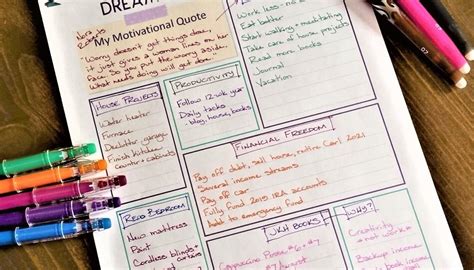 DREAM
My Motivational Quote
Nora Roberts
Worry doesn't get things done,
it just gives a woman lines on her
face. So you put the worry aside.
What needs doing will get done."
Work less - no
Eat better
Start walking + meditating
Take care of home, projects
Read more books
Journal
Vacation
House Projects
Water heater
Furnace
Declutter garage
Finish Kitchen
Counter + cabinets
Productivity
Follow 12-wk year
Daily tasks
- blog, house, books
Financial Freedom
Pay off debt, sell house, retire Carl 2021
Several income streams
Pay off cars
Fully fund 2019 IRA accounts
Add to emergency fund
Redo Bedroom
New mattress
Paint
Cordless blinds +
curtains
JKH Books
Cappuccino #6 + #7
Why?
Creativity
- not writing
Backup income